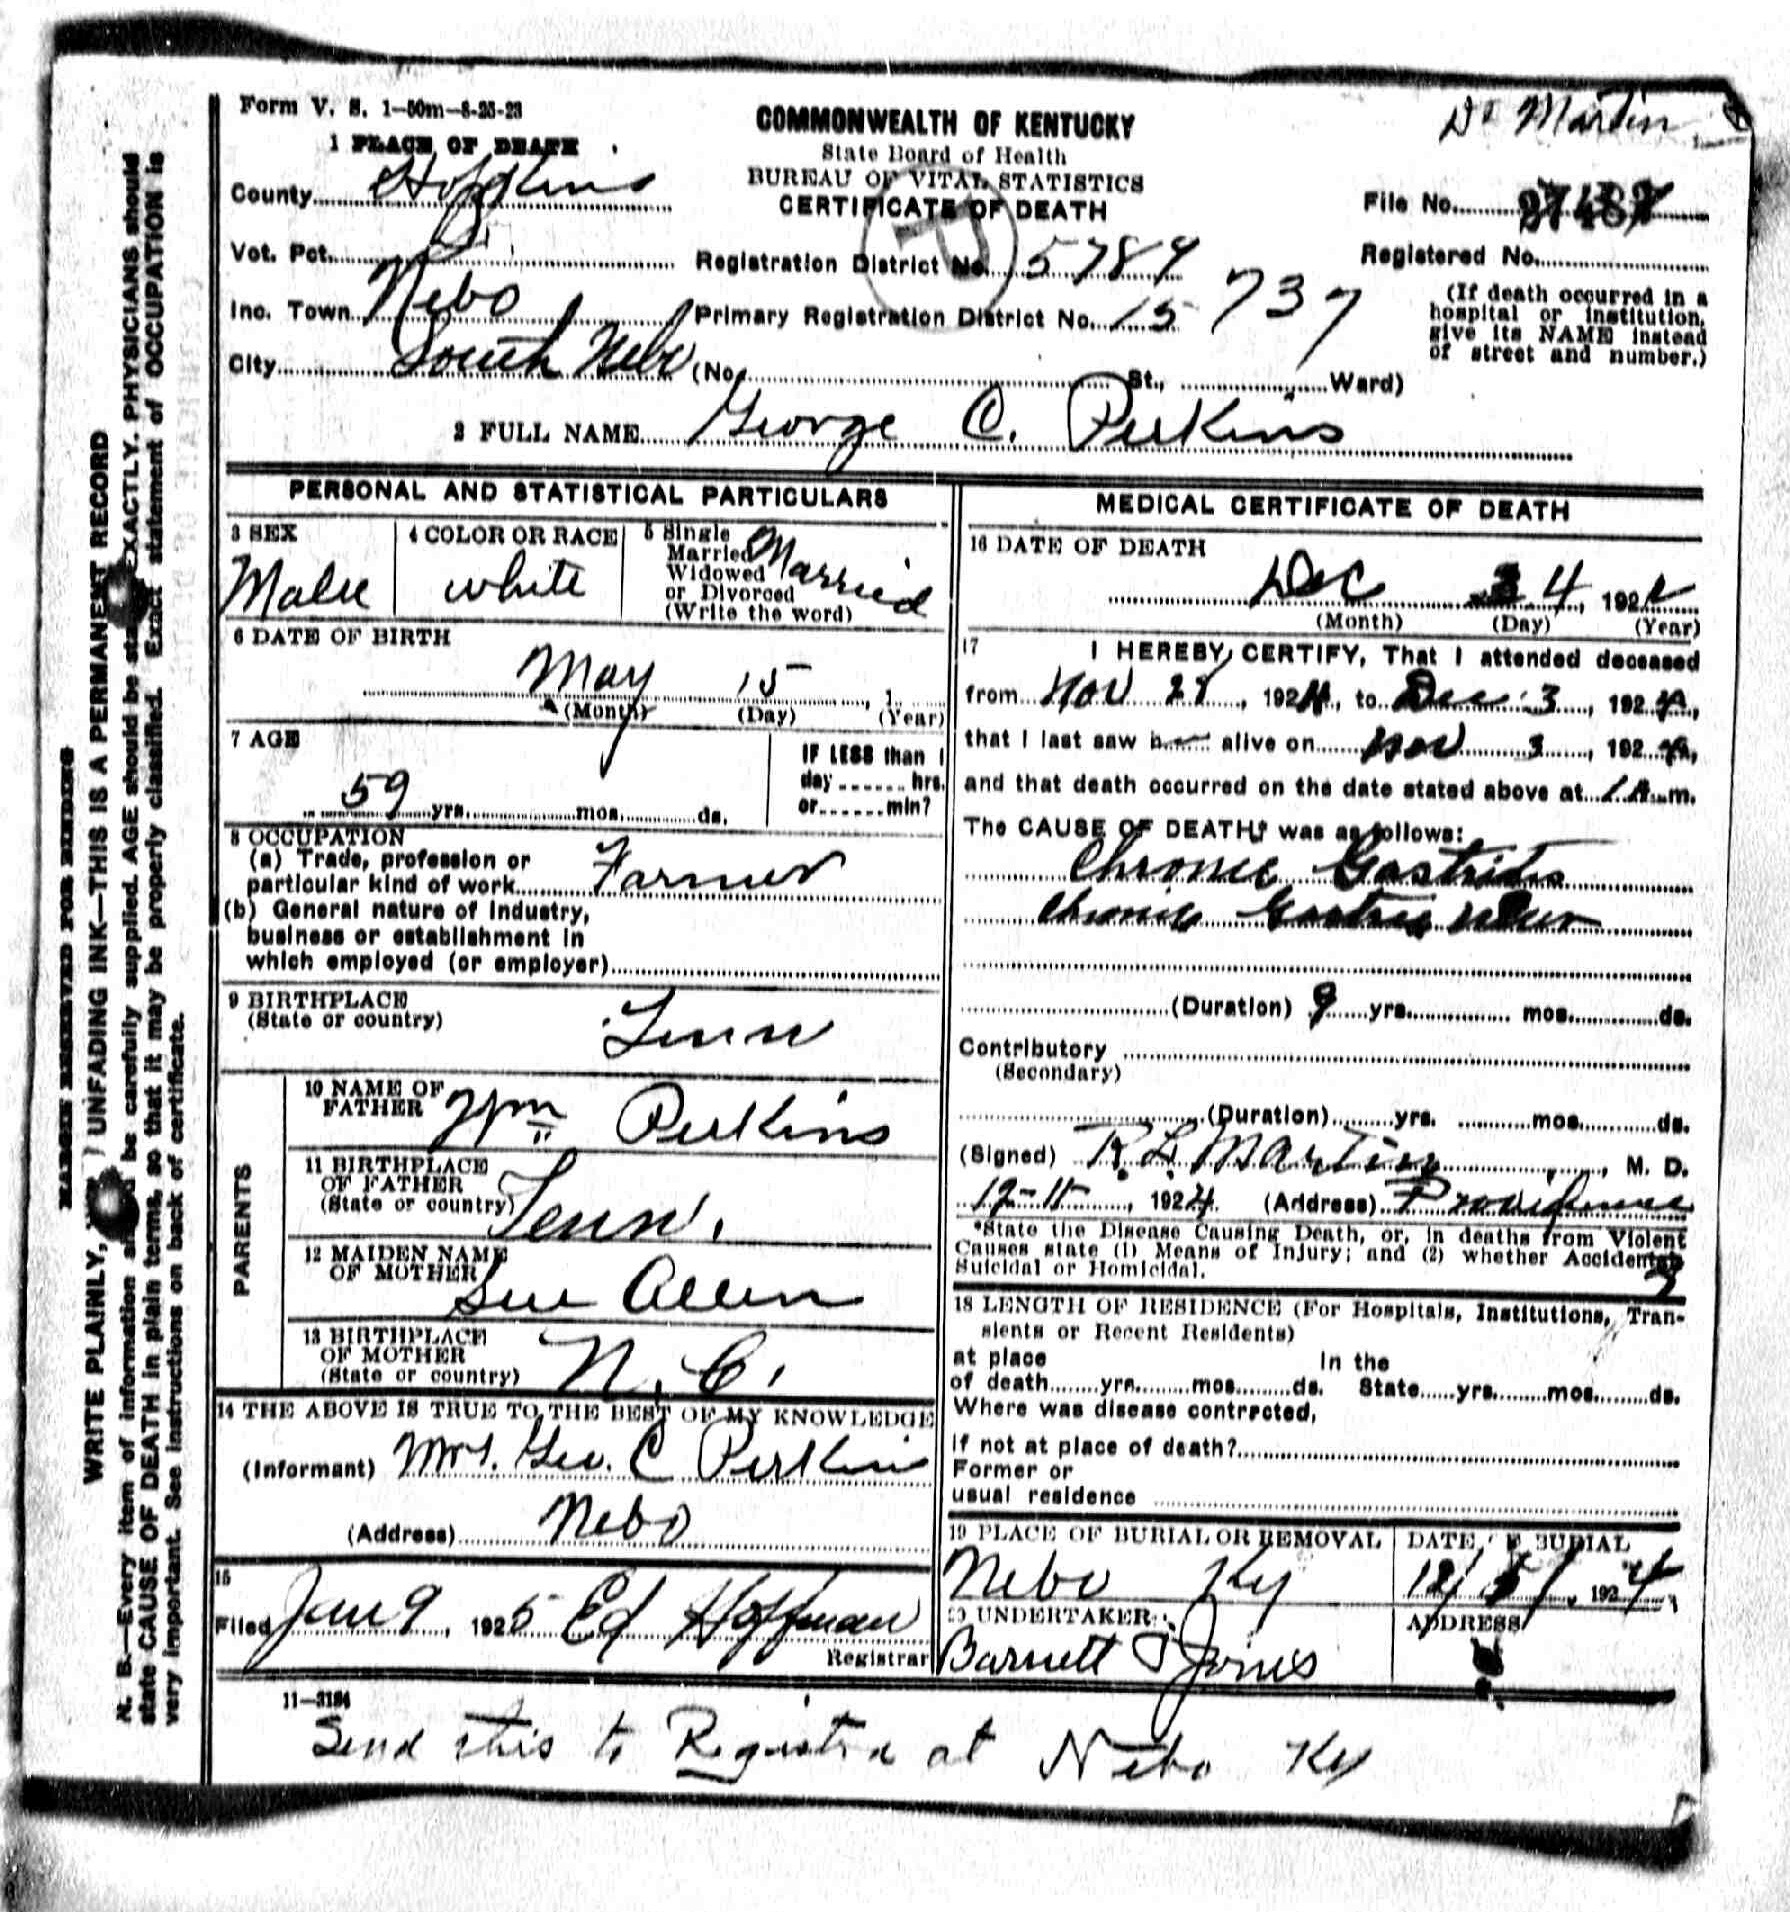 Dr Martin
Form V. S. 1—50m—8-25-23
COMMONWEALTH OF KENTUCKY
State Board of Health
BUREAU OF VITAL STATISTICS
CERTIFICATE OF DEATH
1 PLACE OF DEATH
County Hopkins
File No.
Vot. Pct.
Registration District No. 5789
Registered No.
Inc. Town Nebo
Primary Registration District No. 15 737
(If death occurred in a
hospital or institution,
give its NAME instead
of street and number.)
City South Nebo (No. St., Ward)
2 FULL NAME George C. Perkins
PERSONAL AND STATISTICAL PARTICULARS
3 SEX
Male
4 COLOR OR RACE
White
5 Single
Married
Widowed
or Divorced
(Write the word)
Married
6 DATE OF BIRTH
May 15, 1
(Month) (Day) (Year)
7 AGE
59 yrs. mos. ds.
IF LESS than 1
day hrs.
or min?
8 OCCUPATION
(a) Trade, profession or
particular kind of work Farmer
(b) General nature of Industry,
business or establishment in
which employed (or employer)
9 BIRTHPLACE
(State or country)
Tenn
PARENTS
10 NAME OF
FATHER Wm Perkins
11 BIRTHPLACE
OF FATHER
(State or country) Tenn.
12 MAIDEN NAME
OF MOTHER Sue Allen
13 BIRTHPLACE
OF MOTHER
(State or country) N. C.
14 THE ABOVE IS TRUE TO THE BEST OF MY KNOWLEDGE
(Informant) Mrs. Geo. C Perkins
(Address) Nebo
15
Filed Jan 9, 1925 Ed Hoffman
Registrar
MEDICAL CERTIFICATE OF DEATH
16 DATE OF DEATH
Dec 4, 1924
(Month) (Day) (Year)
17 I HEREBY CERTIFY, That I attended deceased
from Nov 28, 1924, to Dec 3, 1924,
that I last saw h alive on Nov 3, 1924,
and that death occurred on the date stated above at 1 A m.
The CAUSE OF DEATH* was as follows:
Chronic Gastritis
Chronic Gastric Ulcer
(Duration) 9 yrs. mos. ds.
Contributory
(Secondary)
(Duration) yrs. mos. ds.
(Signed) R. L. Martin, M. D.
, 1924 (Address) Providence
*State the Disease Causing Death, or, in deaths from Violent
Causes state (1) Means of Injury; and (2) whether Accidental,
Suicidal or Homicidal.
18 LENGTH OF RESIDENCE (For Hospitals, Institutions, Tran-
sients or Recent Residents)
at place In the
of death yrs. mos. ds. State yrs. mos. ds.
Where was disease contracted,
if not at place of death?
Former or
usual residence
19 PLACE OF BURIAL OR REMOVAL
Nebo Ky
DATE OF BURIAL
12/5/, 1924
20 UNDERTAKER
Barnett & Jones
ADDRESS
11—3184
Send this to Registrar at Nebo Ky
MARGIN RESERVED FOR BINDING
WRITE PLAINLY, UNFADING INK—THIS IS A PERMANENT RECORD
N. B.—Every item of information should be carefully supplied. AGE should be stated EXACTLY. PHYSICIANS should
state CAUSE OF DEATH in plain terms, so that it may be properly classified. Exact statement of OCCUPATION is
very important. See instructions on back of certificate.